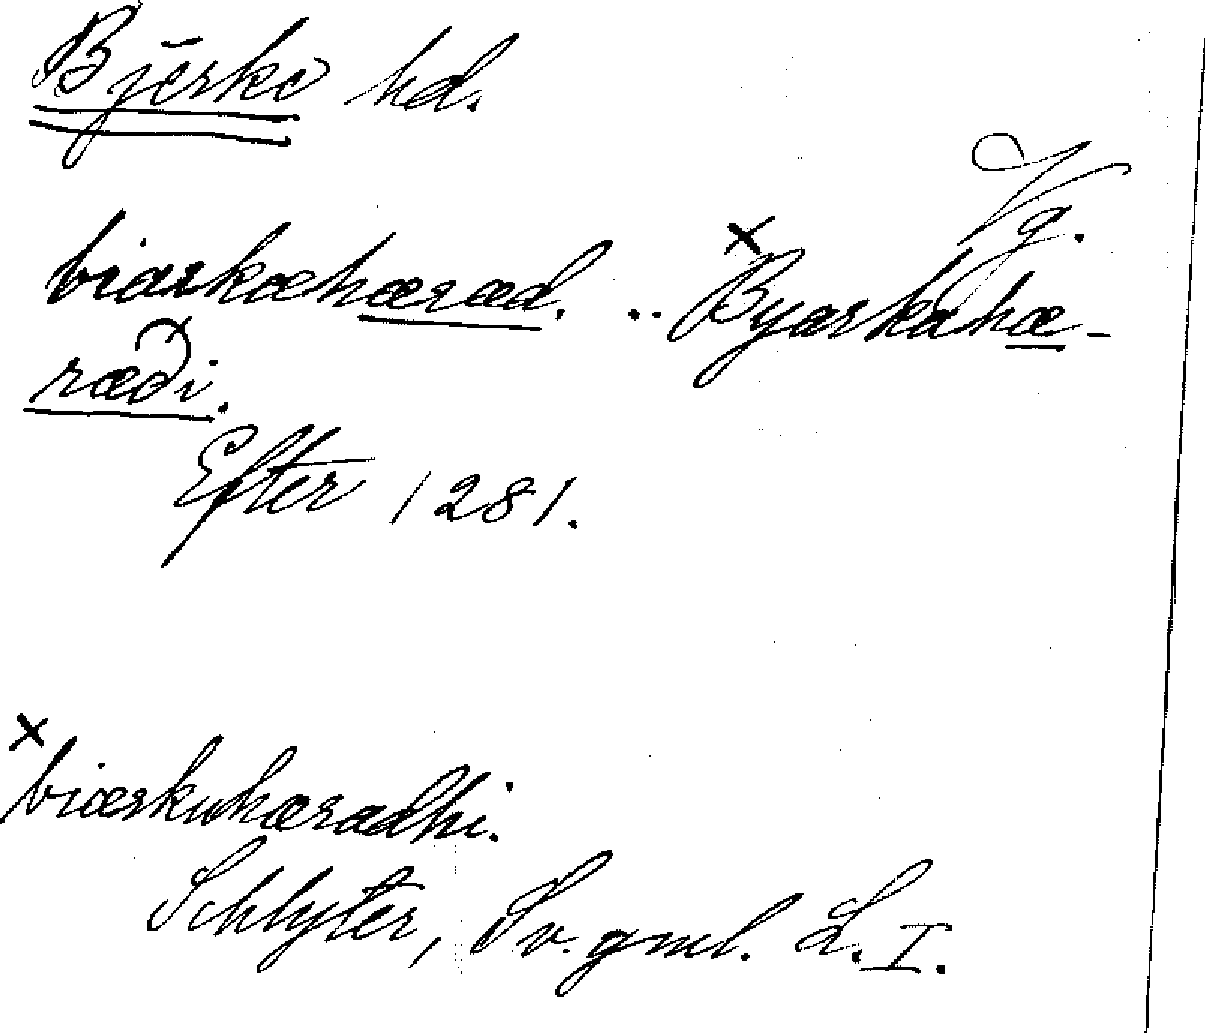 Bjerke hd.
Vg.
biærkæhæræd. .. ×Byærkahæ-
ræði.
Efter 1281.
×biærkuhæradhi.
Schlyter, Sv. gml. L. I.